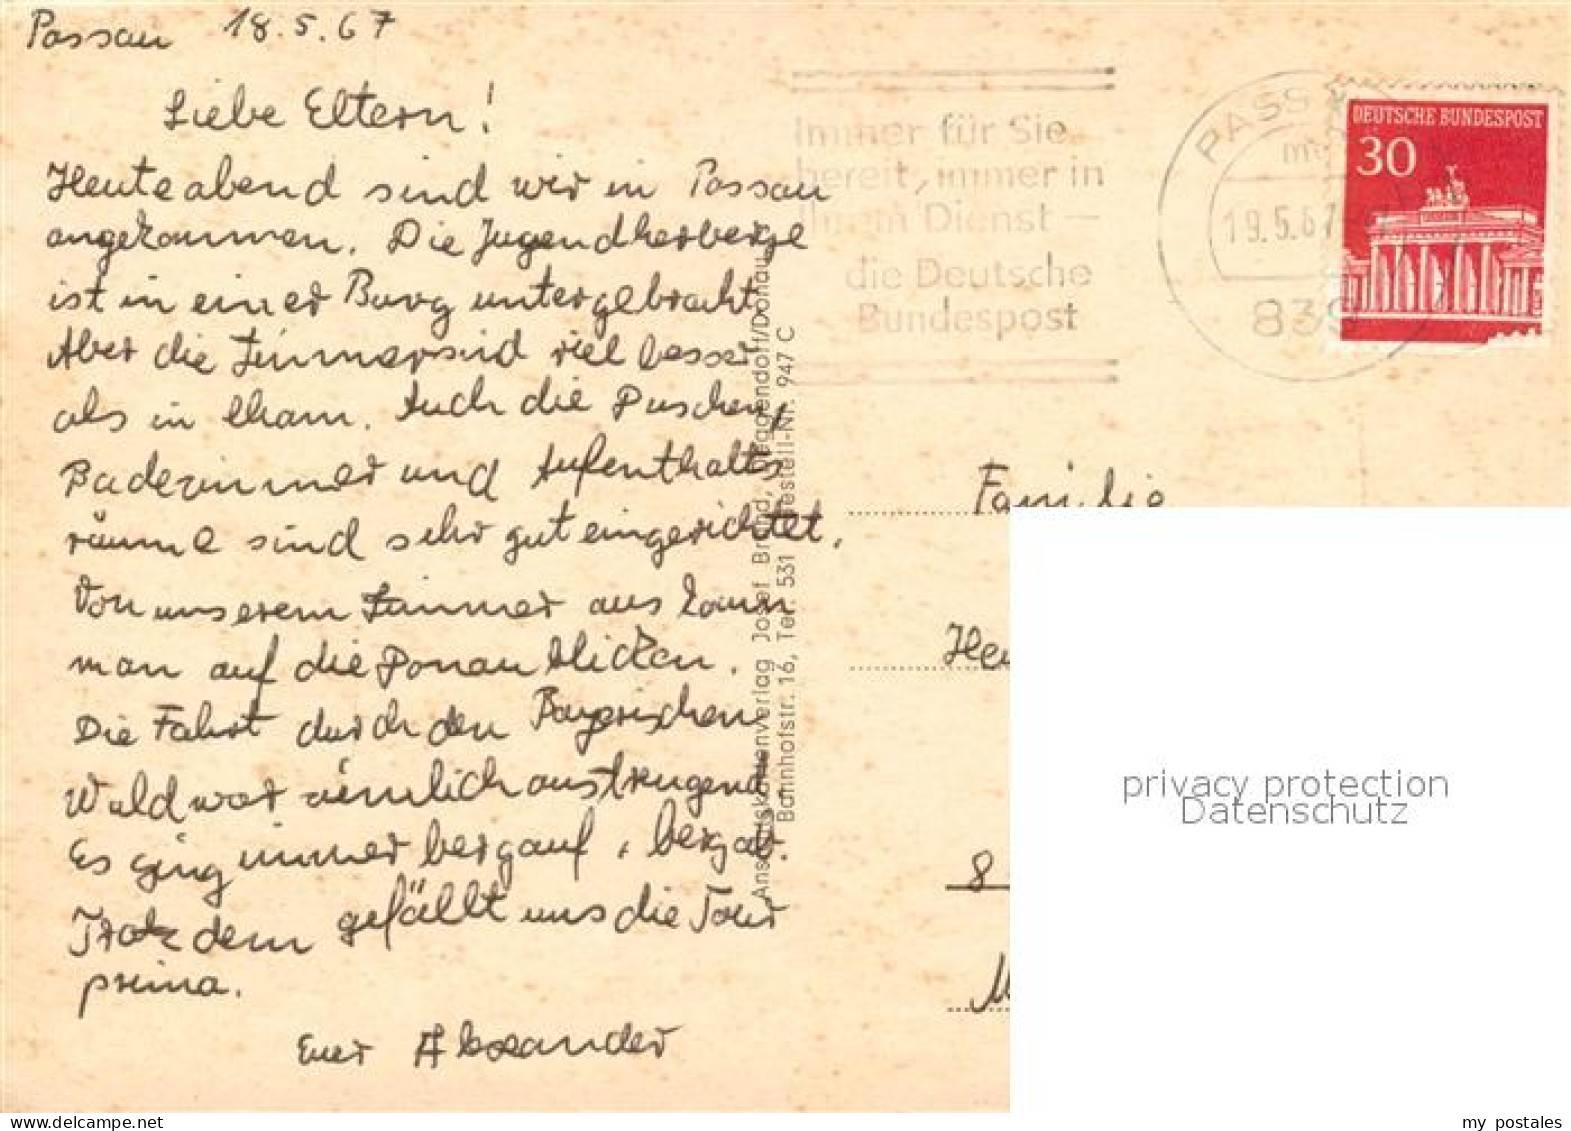 Passau 18.5.67
Liebe Eltern!
Heute abend sind wir in Passau
angekommen. Die Jugendherberge
ist in einer Burg untergebracht
Aber die Zimmer sind viel besser
als in Cham. Auch die Duschen,
Badezimmer und Aufenthalts
räume sind sehr gut eingerichtet.
Von unserem Zimmer aus kann
man auf die Donau blicken.
Die Fahrt durch den Bayerischen
Wald war ziemlich anstrengend
Es ging immer bergauf, bergab.
Trotzdem gefällt uns die Tour
prima.
Euer Alexander
Ansichtskartenverlag Josef Brand, Deggendorf/Donau
Bahnhofstr. 16, Tel. 531 Bestell-Nr. 947 C
Immer für Sie
bereit, immer in
Ihrem Dienst –
die Deutsche
Bundespost
PASSAU
19.5.67
839
DEUTSCHE BUNDESPOST
30
Familie
8
privacy protection
Datenschutz
my postales